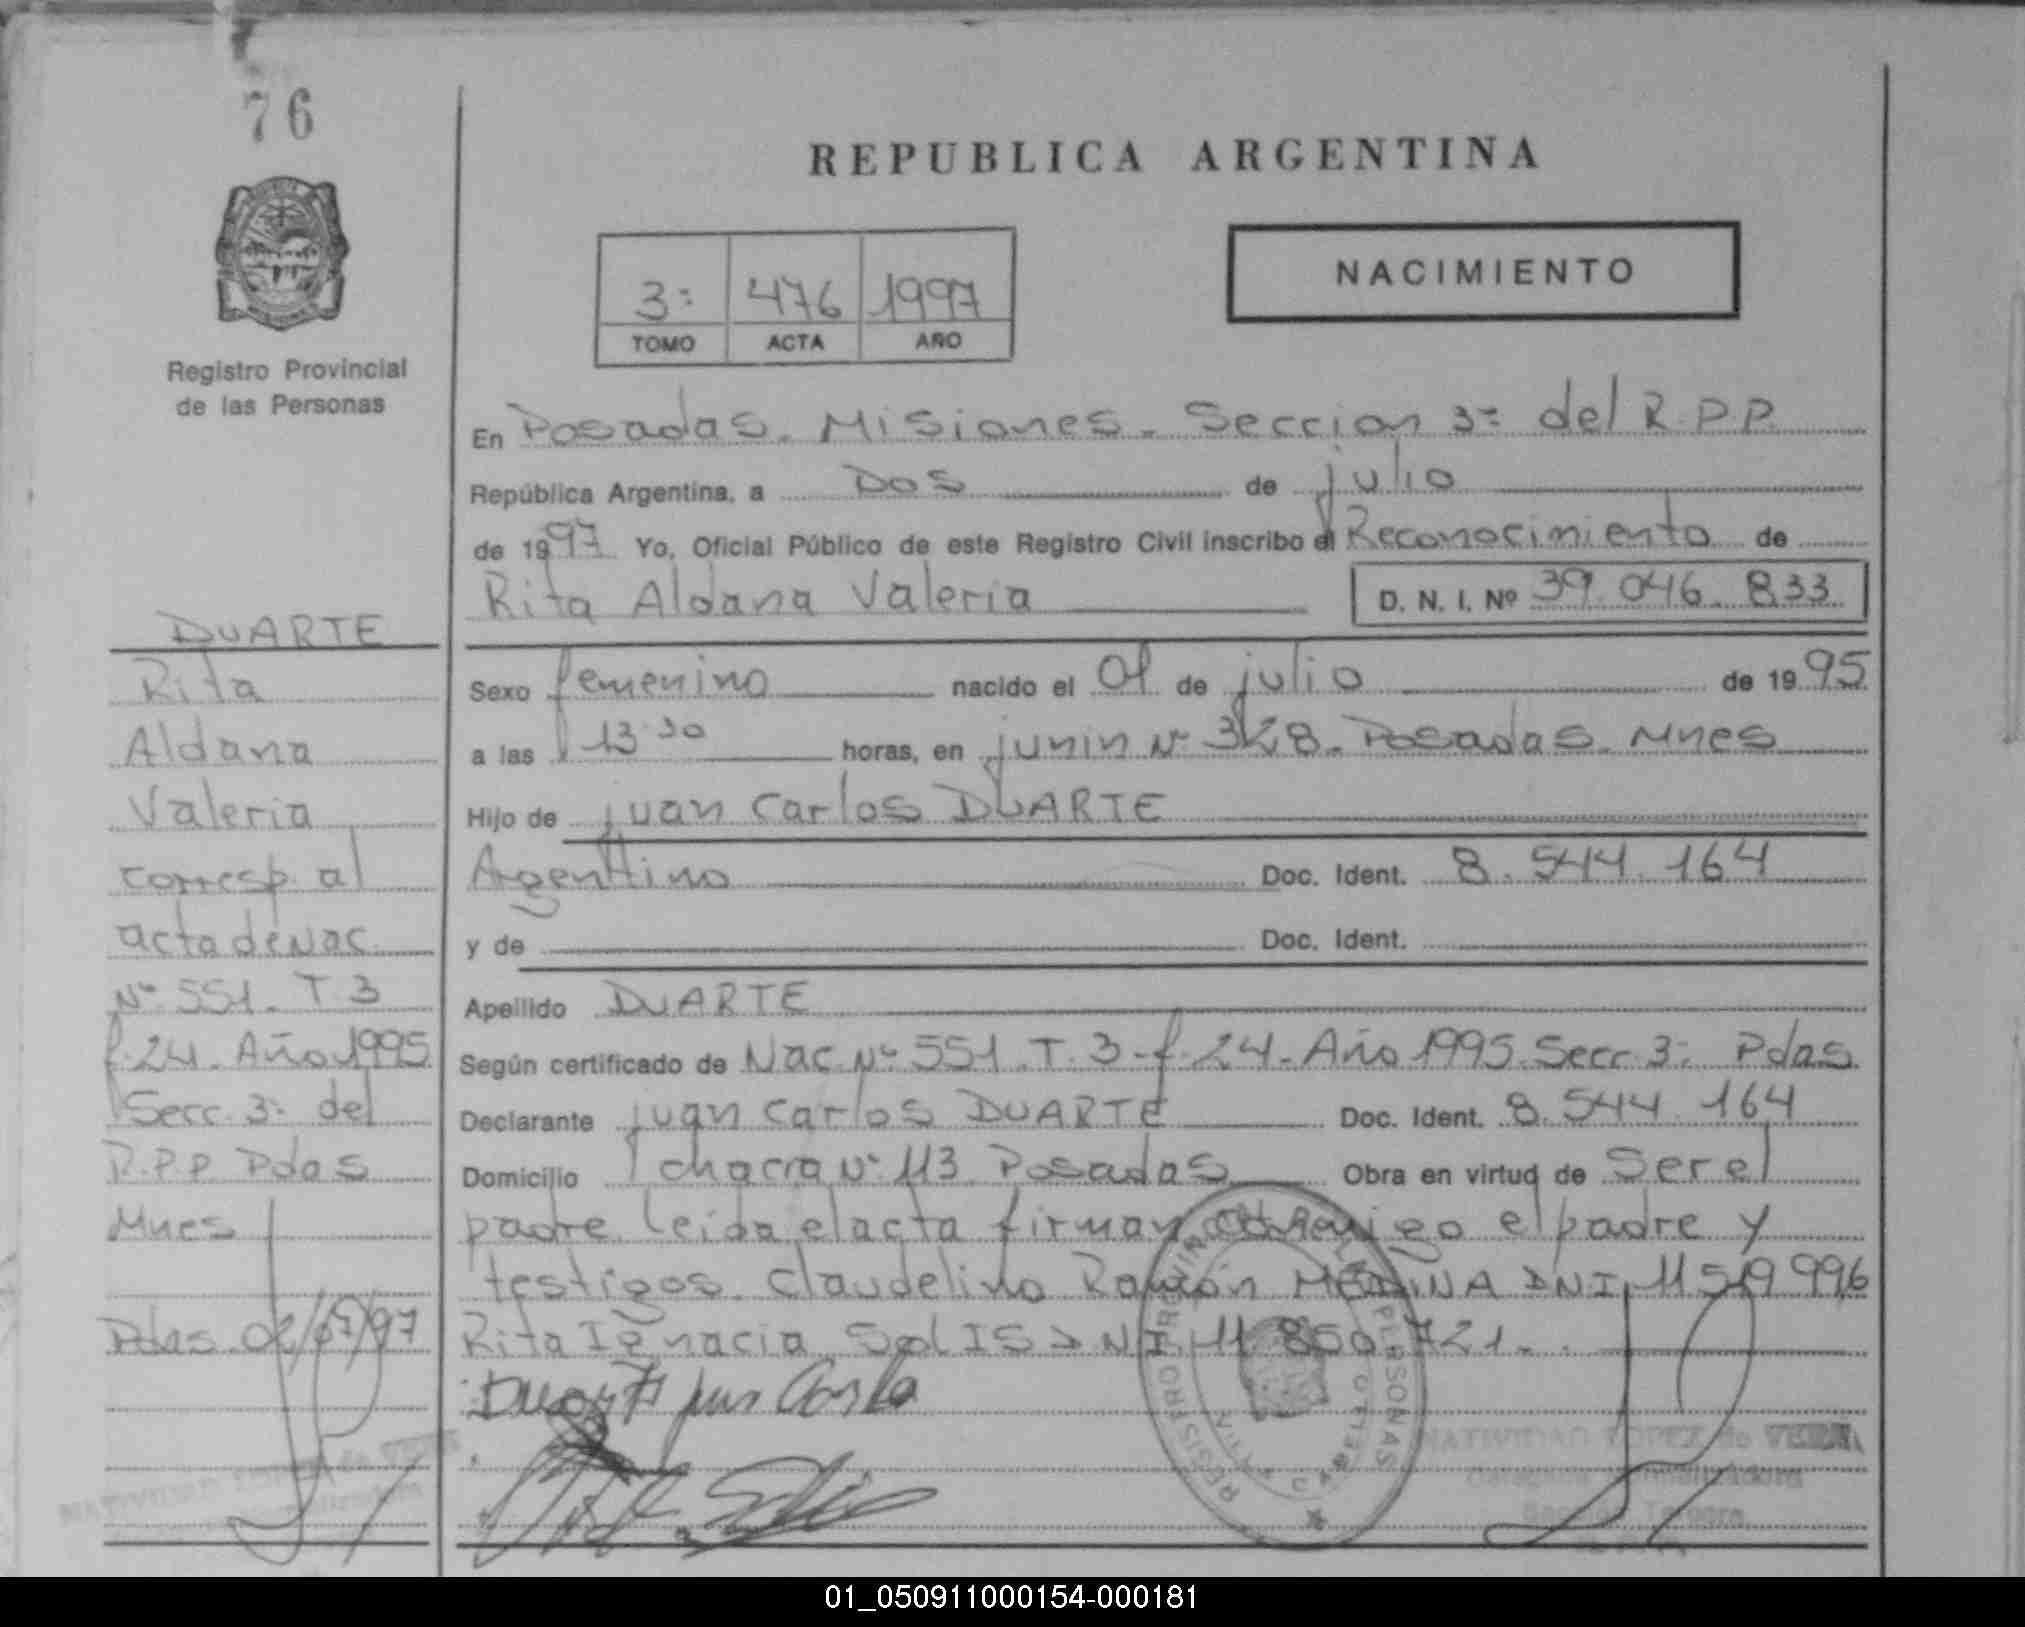 76
REPUBLICA ARGENTINA
NACIMIENTO
3ª 476 1997
TOMO ACTA AÑO
Registro Provincial
de las Personas
En Posadas. Misiones. Seccion 3ª del R.P.P.
República Argentina, a Dos de julio
de 1997 Yo, Oficial Público de este Registro Civil inscribo el Reconocimiento de
Rita Aldana Valeria D. N. I. Nº 39.046.833
Sexo femenino nacido el 01 de julio de 1995
a las 13 30 horas, en junin Nº Posadas. Mnes
Hijo de juan Carlos DUARTE
Argentino Doc. Ident. 8.544.164
y de Doc. Ident.
Apellido DUARTE
Según certificado de Nac. Nº 551. T. 3. f. 24. Año 1995. Secc. 3ª Pdas
Declarante juan Carlos DUARTE Doc. Ident. 8.544.164
Domicilio chacra Nº 113 Posadas Obra en virtud de Ser el
padre. leida el acta firman conmigo el padre y
testigos. Claudelino Ramón MEDINA DNI 11 519 996
Rita Ignacia SoLIS DNI 11 850 721.
DUARTE
Rita
Aldana
Valeria
corresp. al
acta de Nac.
Nº 551. T. 3
f. 24. Año 1995
Secc. 3ª del
R.P.P. Pdas
Mnes
Pdas. 02/07/97
REGISTRO PROVINCIAL PERSONAS
NATIVIDAD LOPEZ de VERA
01_050911000154-000181